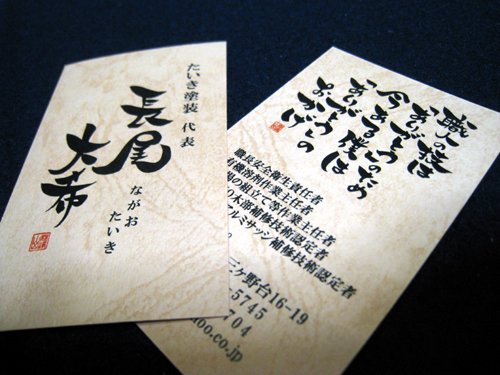 たいき塗装 代表
長尾
大希
ながお
たいき
職人の技は
ありがとうのため
今ある僕は
ありがとうの
おかげ
職長安全衛生責任者
有機溶剤作業主任者
の組立て等作業主任者
木部補修技術認定者
アルミサッシ補修技術認定者
三ケ野台16-19
-5745
704
oo.co.jp